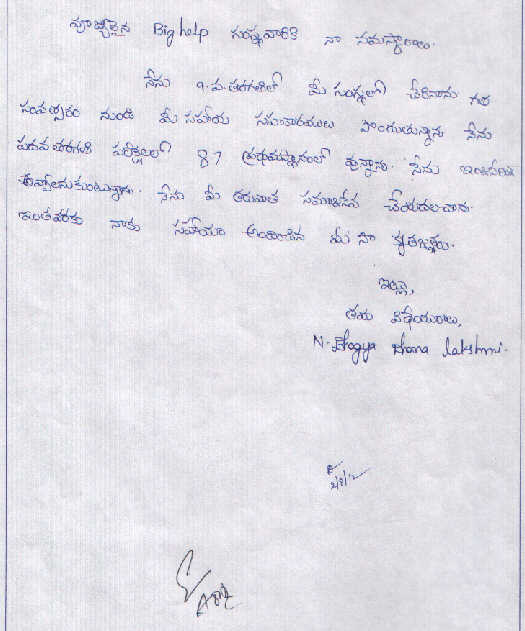 పూజ్యులైన Big help సంస్థవారికి నా నమస్కారాలు.
నేను 9.వ.తరగతిలో మీ సంస్థలో చేరినాను గత
సంవత్సరం నుండి మీ సహాయ సహకారములు పొందుతున్నాను నేను
పదవ తరగతి పరీక్షలలో 87 ప్రథమస్థానంలో ఉన్నాను. నేను
అనుకుంటున్నాను. నేను మీ తరువాత సమాజసేవ చేయదలచాను.
ఇంతవరకు నాకు సహాయం అందించిన మీకు నా కృతజ్ఞతలు.
ఇట్లు,
తమ విధేయురాలు,
N. Bhagya Dhana lakshmi.